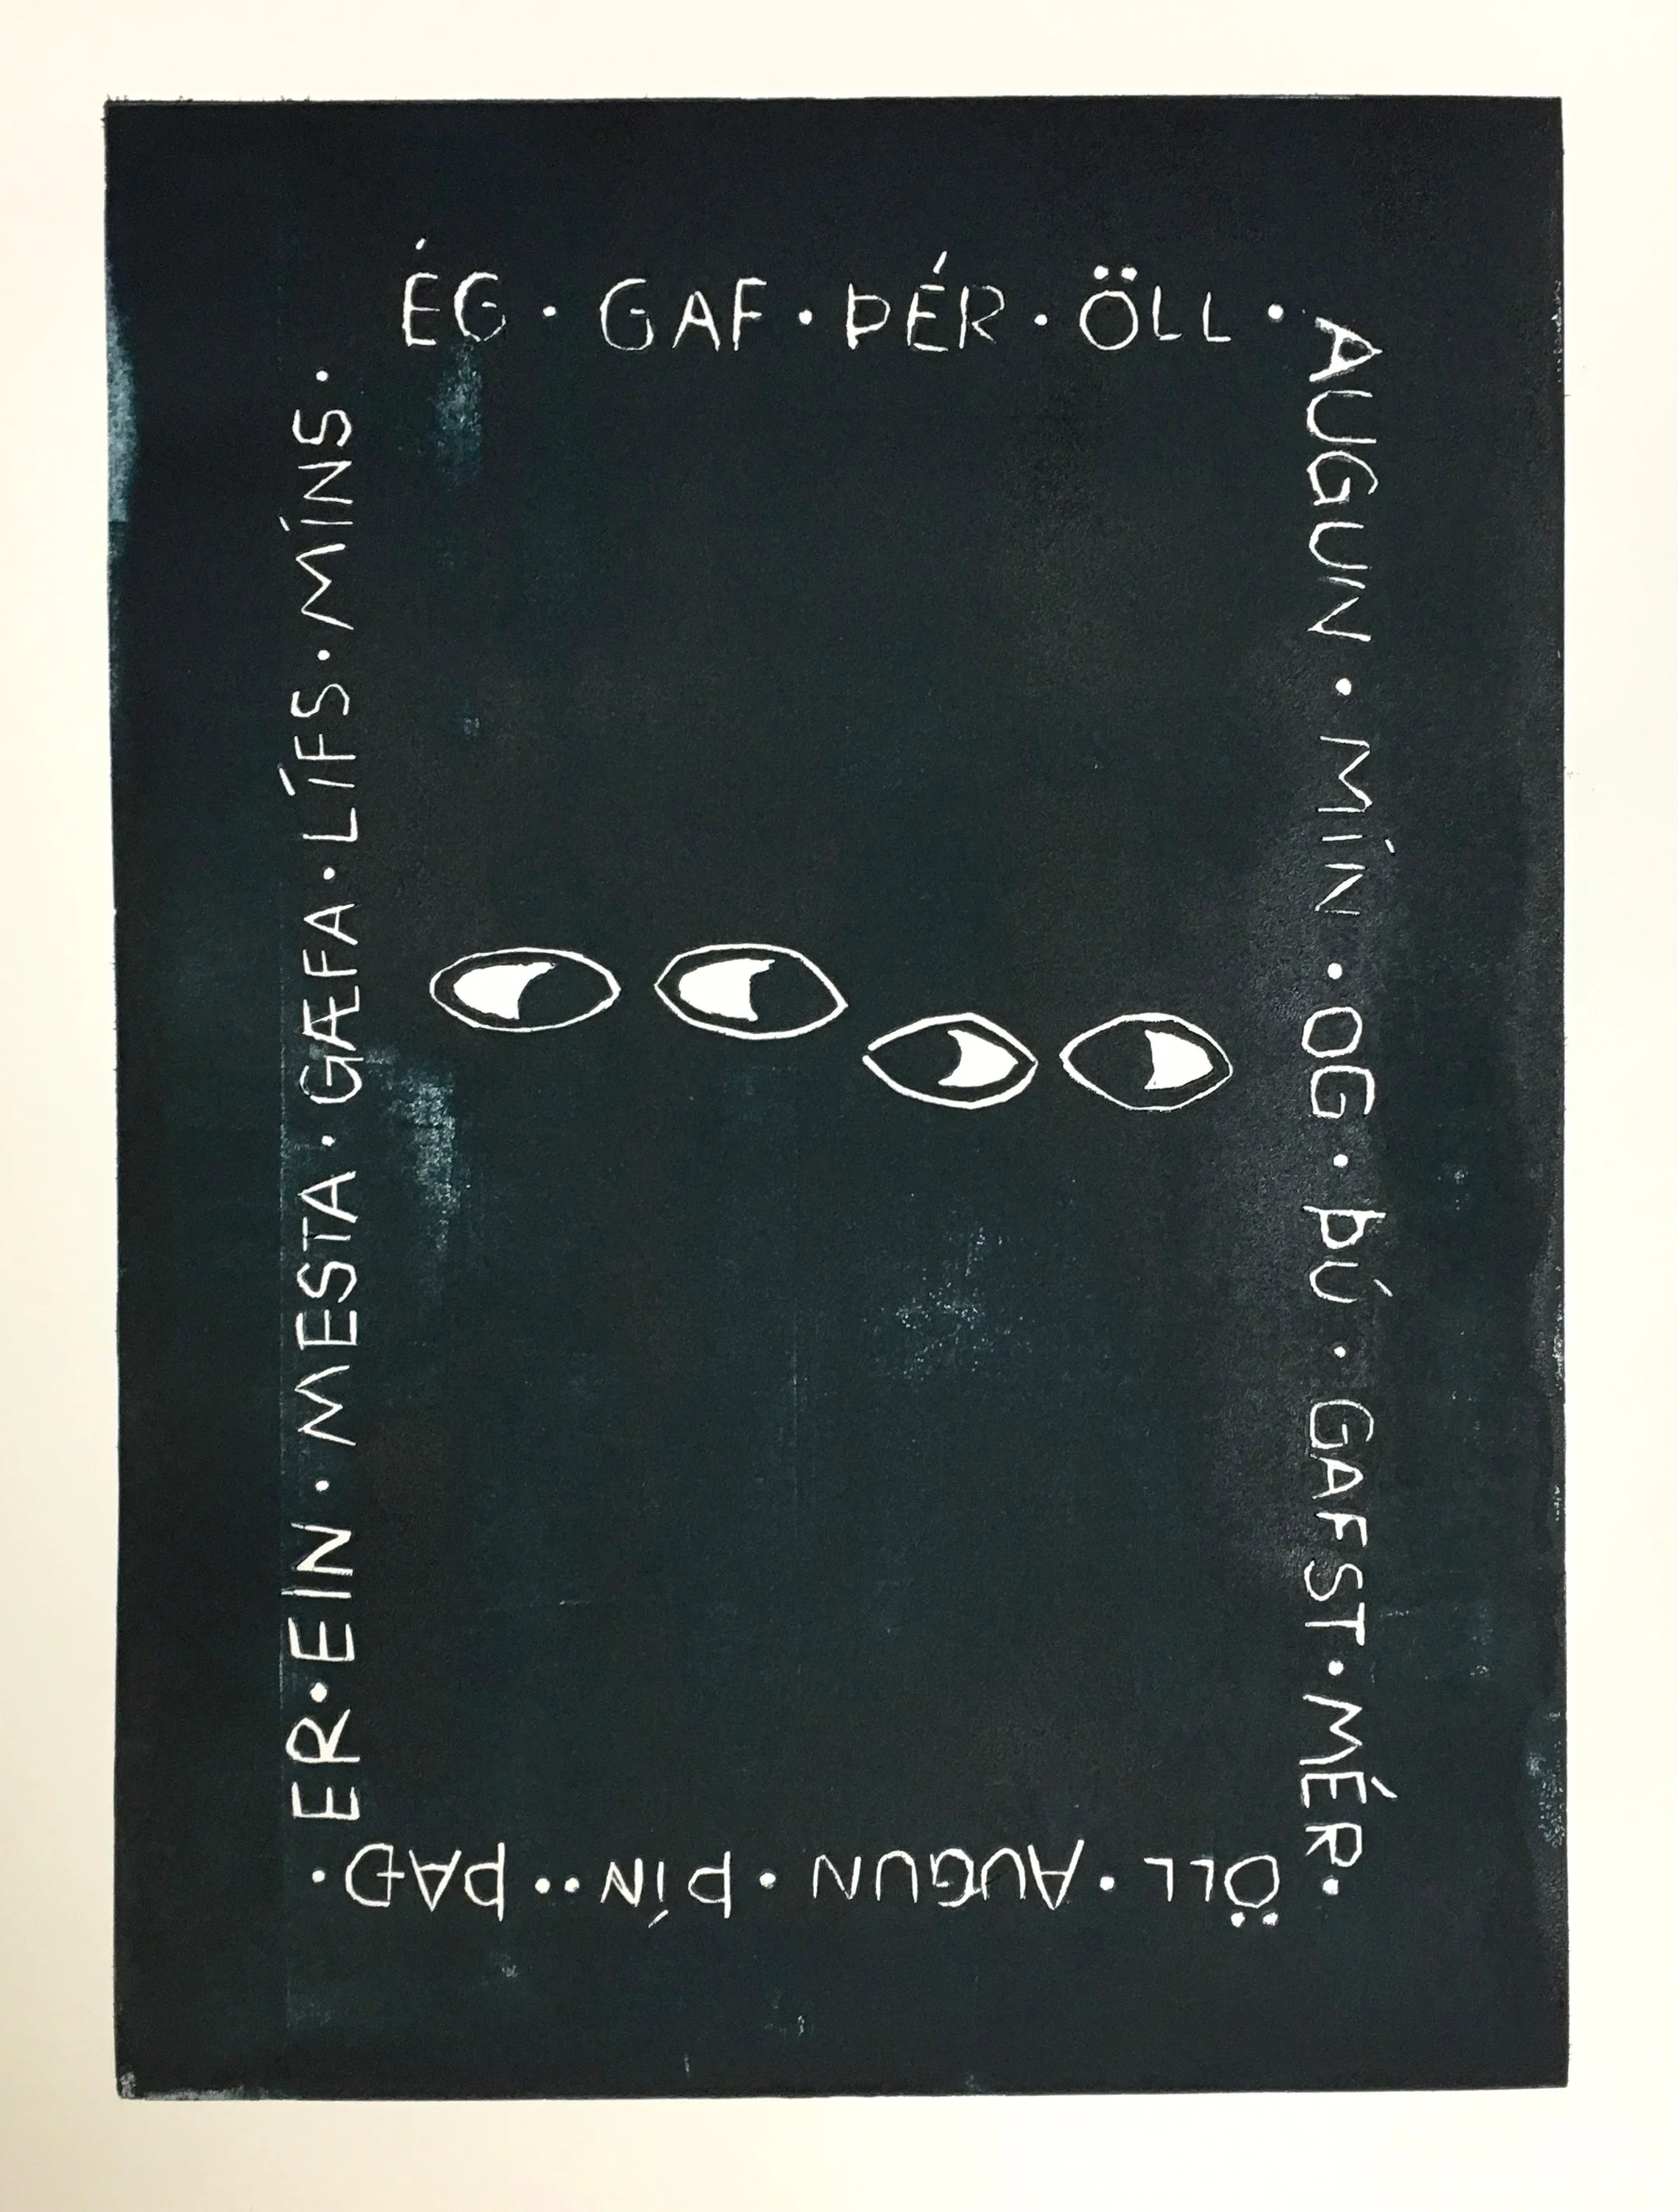 ÉG · GAF · ÞÉR · ÖLL ·
AUGUN · MÍN · OG · ÞÚ · GAFST · MÉR ·
ÖLL · AUGUN · ÞÍN · · ÞAÐ ·
ER · EIN · MESTA · GÆFA · LÍFS · MÍNS ·